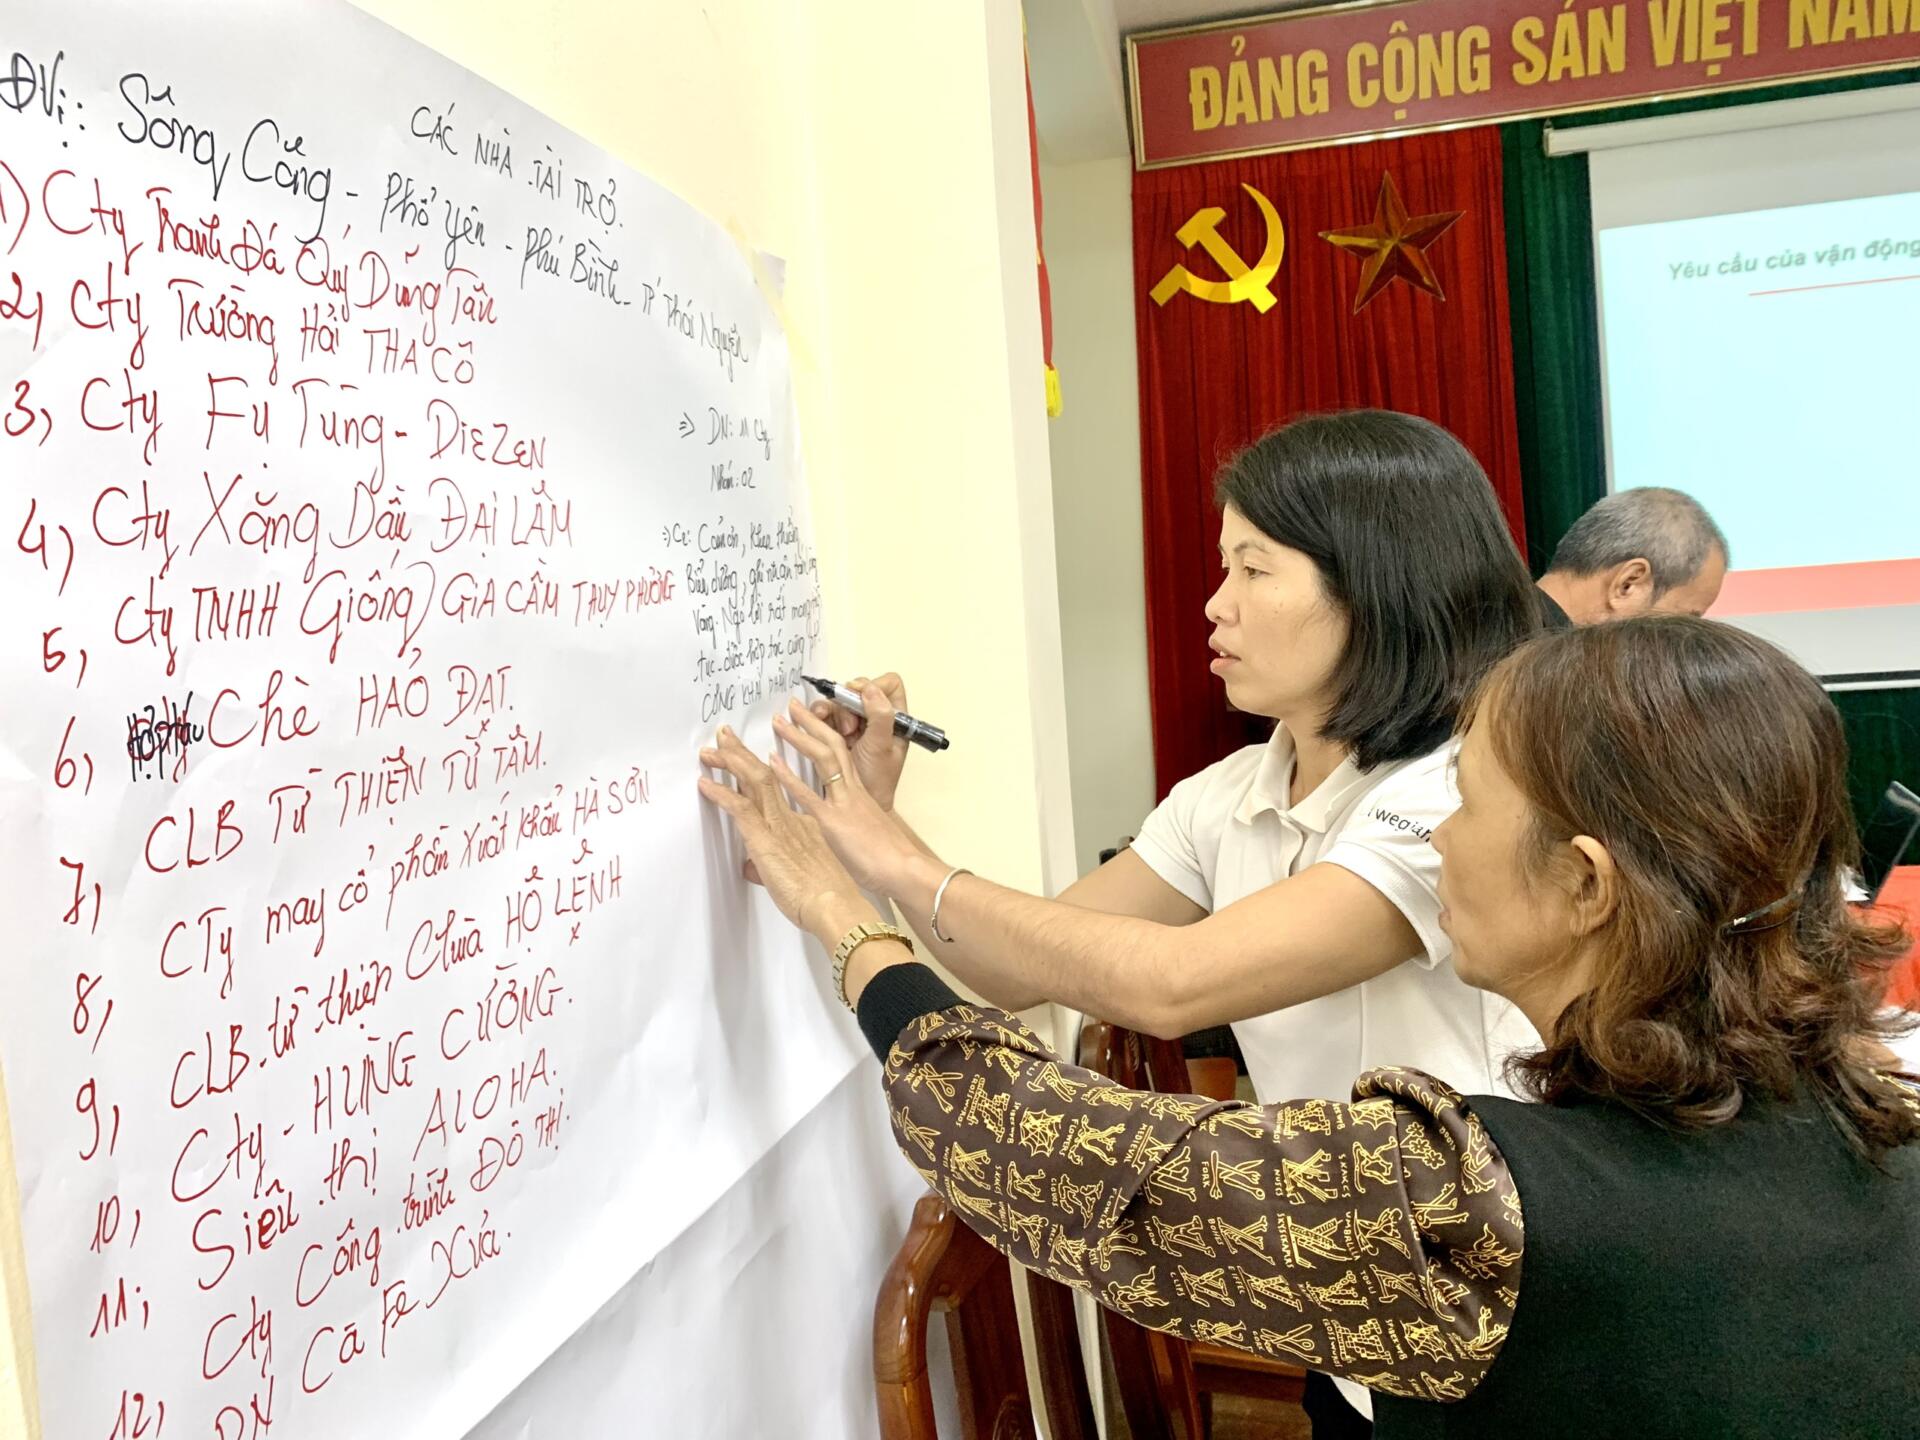 CÁC NHÀ TÀI TRỢ.
ĐVị: Sông Công - Phổ Yên - Phú Bình - TP Thái Nguyên
1) Cty Tranh Đá Quý Dũng Tân
2, Cty Trường Hải THACÔ
3, Cty Fụ Tùng - DIEZEN
4, Cty Xăng Dầu ĐẠI LÂM
5, Cty TNHH Giống GIA CẦM THỤY PHƯƠNG
6, Chè HẢO ĐẠT.
7, CLB TỪ THIỆN TỪ TÂM.
8, CTy may cổ phần xuất khẩu HÀ SƠN
9, CLB từ thiện Chùa HỘ LỆNH
10, Cty - HÙNG CƯỜNG.
11, Siêu thị ALOHA.
12, Cty Công trình ĐÔ THỊ.
DN Cà Fê Xưa.
=> DN: 11 Cty.
Nhóm: 02
Cảm ơn, khen thưởng,
Biểu dương, ghi
Vàng. Ngỏ lời rất mong
tục được hợp tác cùng
CÔNG KHAI
ĐẢNG CỘNG SẢN VIỆT NAM
Yêu cầu của vận động